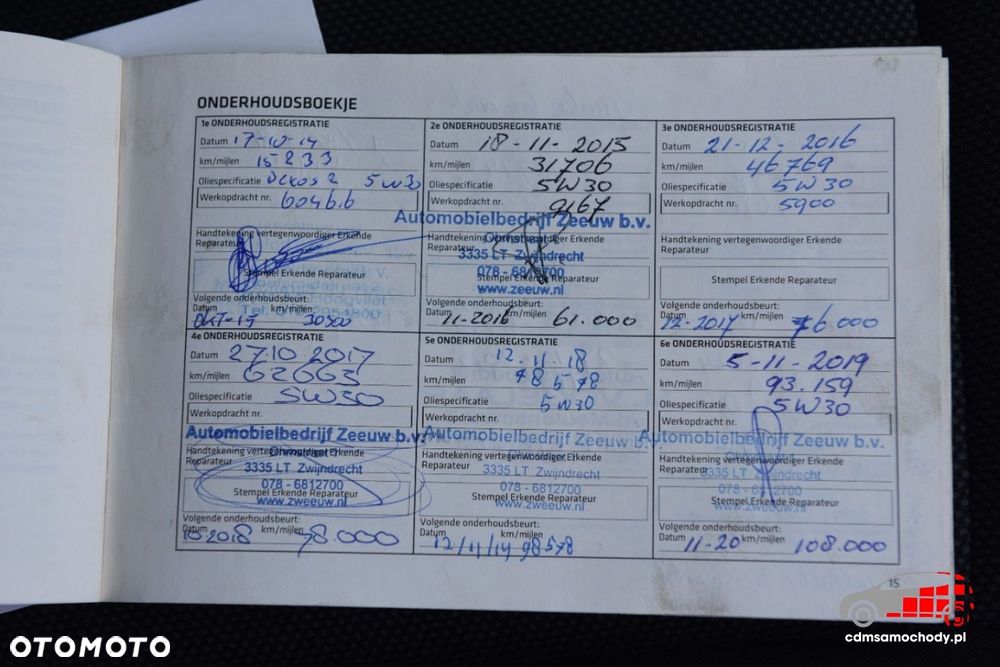 ONDERHOUDSBOEKJE
1e ONDERHOUDSREGISTRATIE
Datum 17-10-14
km/mijlen 15 233
Oliespecificatie 5W30
Werkopdracht nr. 60466
Handtekening vertegenwoordiger Erkende
Reparateur:
Stempel Erkende Reparateur
Hoogvliet
Volgende onderhoudsbeurt:
Datum km/mijlen
OKT-15 30500
2e ONDERHOUDSREGISTRATIE
Datum 18-11-2015
km/mijlen 31706
Oliespecificatie 5W30
Werkopdracht nr. 9167
Automobielbedrijf Zeeuw b.v.
Handtekening vertegenwoordiger Erkende
Reparateur:
3335 LT Zwijndrecht
078 - 6812700
Stempel Erkende Reparateur
www.zeeuw.nl
Volgende onderhoudsbeurt:
Datum km/mijlen
11-2016 61.000
3e ONDERHOUDSREGISTRATIE
Datum 21-12-2016
km/mijlen 46769
Oliespecificatie 5W30
Werkopdracht nr. 5900
Handtekening vertegenwoordiger Erkende
Reparateur:
Stempel Erkende Reparateur
Volgende onderhoudsbeurt:
Datum km/mijlen
12-2017 76000
4e ONDERHOUDSREGISTRATIE
Datum 27.10.2017
km/mijlen 62663
Oliespecificatie 5W30
Werkopdracht nr.
Automobielbedrijf Zeeuw b.v.
Handtekening vertegenwoordiger Erkende
Reparateur:
3335 LT Zwijndrecht
078 - 6812700
Stempel Erkende Reparateur
www.zweeuw.nl
Volgende onderhoudsbeurt:
Datum km/mijlen
10.2018 78.000
5e ONDERHOUDSREGISTRATIE
Datum 12-11-18
km/mijlen 78578
Oliespecificatie 5W30
Werkopdracht nr.
Automobielbedrijf Zeeuw b.v.
Handtekening vertegenwoordiger Erkende
Reparateur:
3335 LT Zwijndrecht
078 - 6812700
Stempel Erkende Reparateur
www.zweeuw.nl
Volgende onderhoudsbeurt:
Datum km/mijlen
12/11/19 98578
6e ONDERHOUDSREGISTRATIE
Datum 5-11-2019
km/mijlen 93.159
Oliespecificatie 5W30
Werkopdracht nr.
Automobielbedrijf Zeeuw b.v.
Handtekening vertegenwoordiger Erkende
Reparateur:
3335 LT Zwijndrecht
078 - 6812700
Stempel Erkende Reparateur
www.zweeuw.nl
Volgende onderhoudsbeurt:
Datum km/mijlen
11-20 108.000
15
OTOMOTO
cdmsamochody.pl